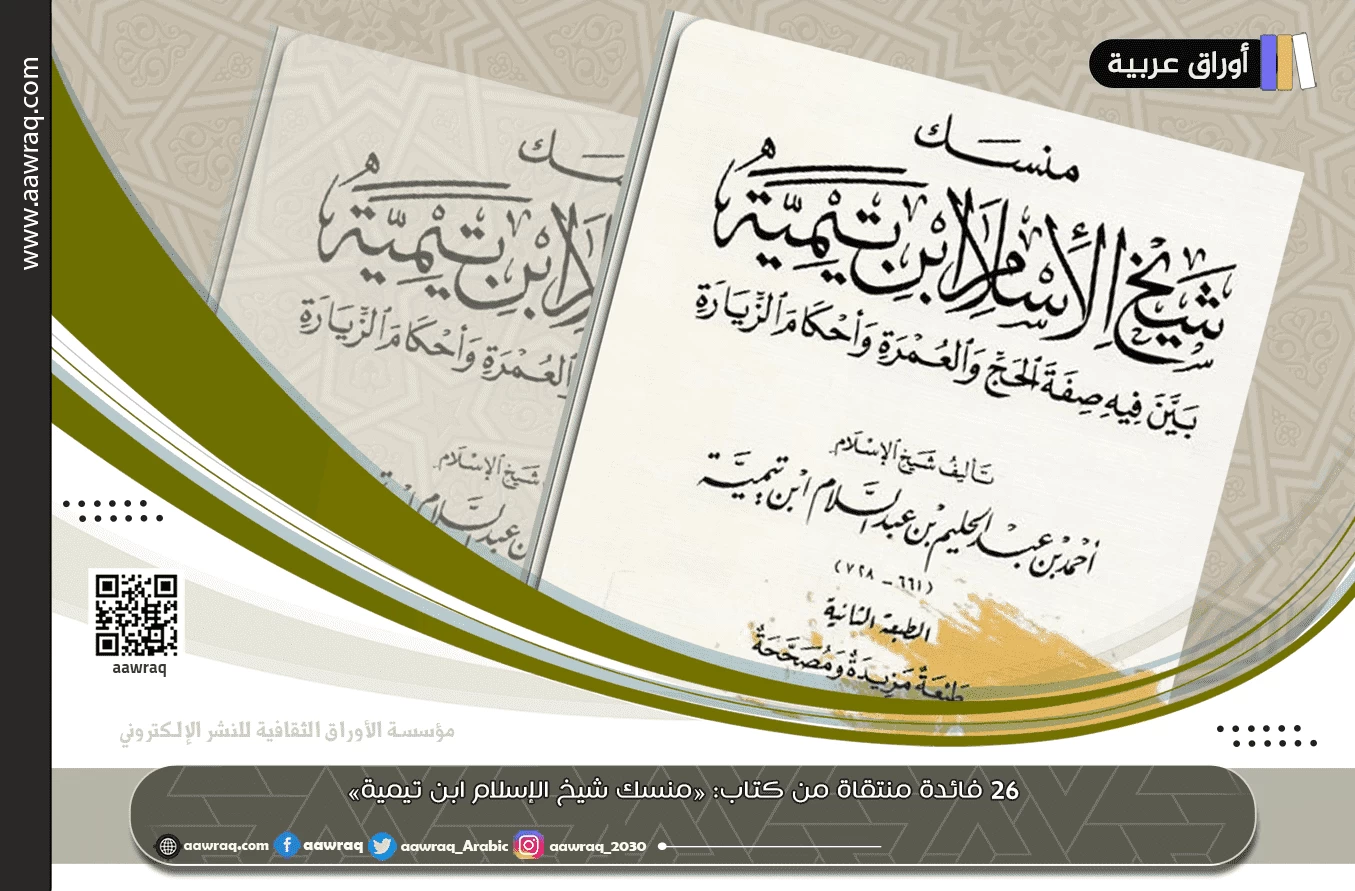 www.aawraq.com
أوراق عربية
منسك
شيخ الإسلام ابن تيمية
بَيَّنَ فِيهِ صِفَةَ الحَجِّ وَالعُمْرَةِ وَأَحْكَامَ الزِّيَارَةِ
تأليف شيخ الإسلام
أحمد بن عبد الحليم بن عبد السلام ابن تيمية
(٦٦١ - ٧٢٨)
الطبعة الثانية
طَبْعَةٌ مَزِيدَةٌ وَمُصَحَّحَةٌ
العُمْرَةِ وَأَحْكَامَ الزِّيَارَةِ
شيخ الإسلام
aawraq
مؤسسة الأوراق الثقافية للنشر الإلكتروني
26 فائدة منتقاة من كتاب: «منسك شيخ الإسلام ابن تيمية»
aawraq.com aawraq aawraq_Arabic aawraq_2030